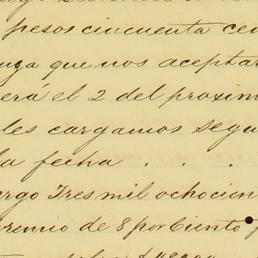 pesos cincuenta cen
nga que nos aceptar
erá el 2 del proxim
les cargamos segu
la fecha . . .
argo Tres mil ochocien
remio de 8 por Ciento